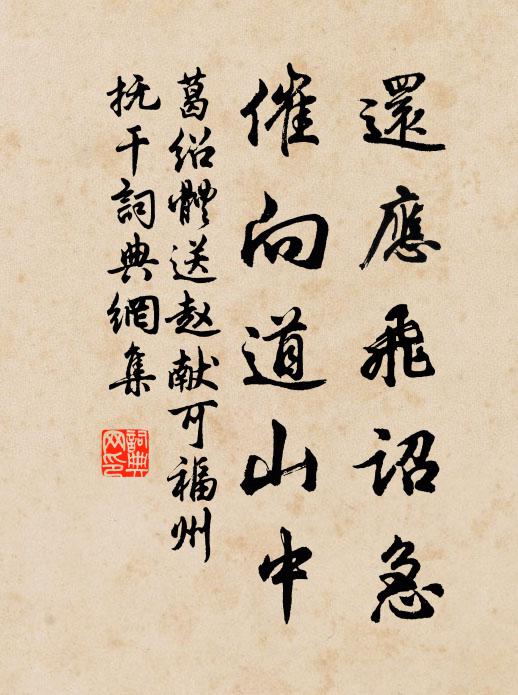 還應飛詔急
催向道山中
葛紹體送赵献可福州
抚干詞典網集
詞典网印